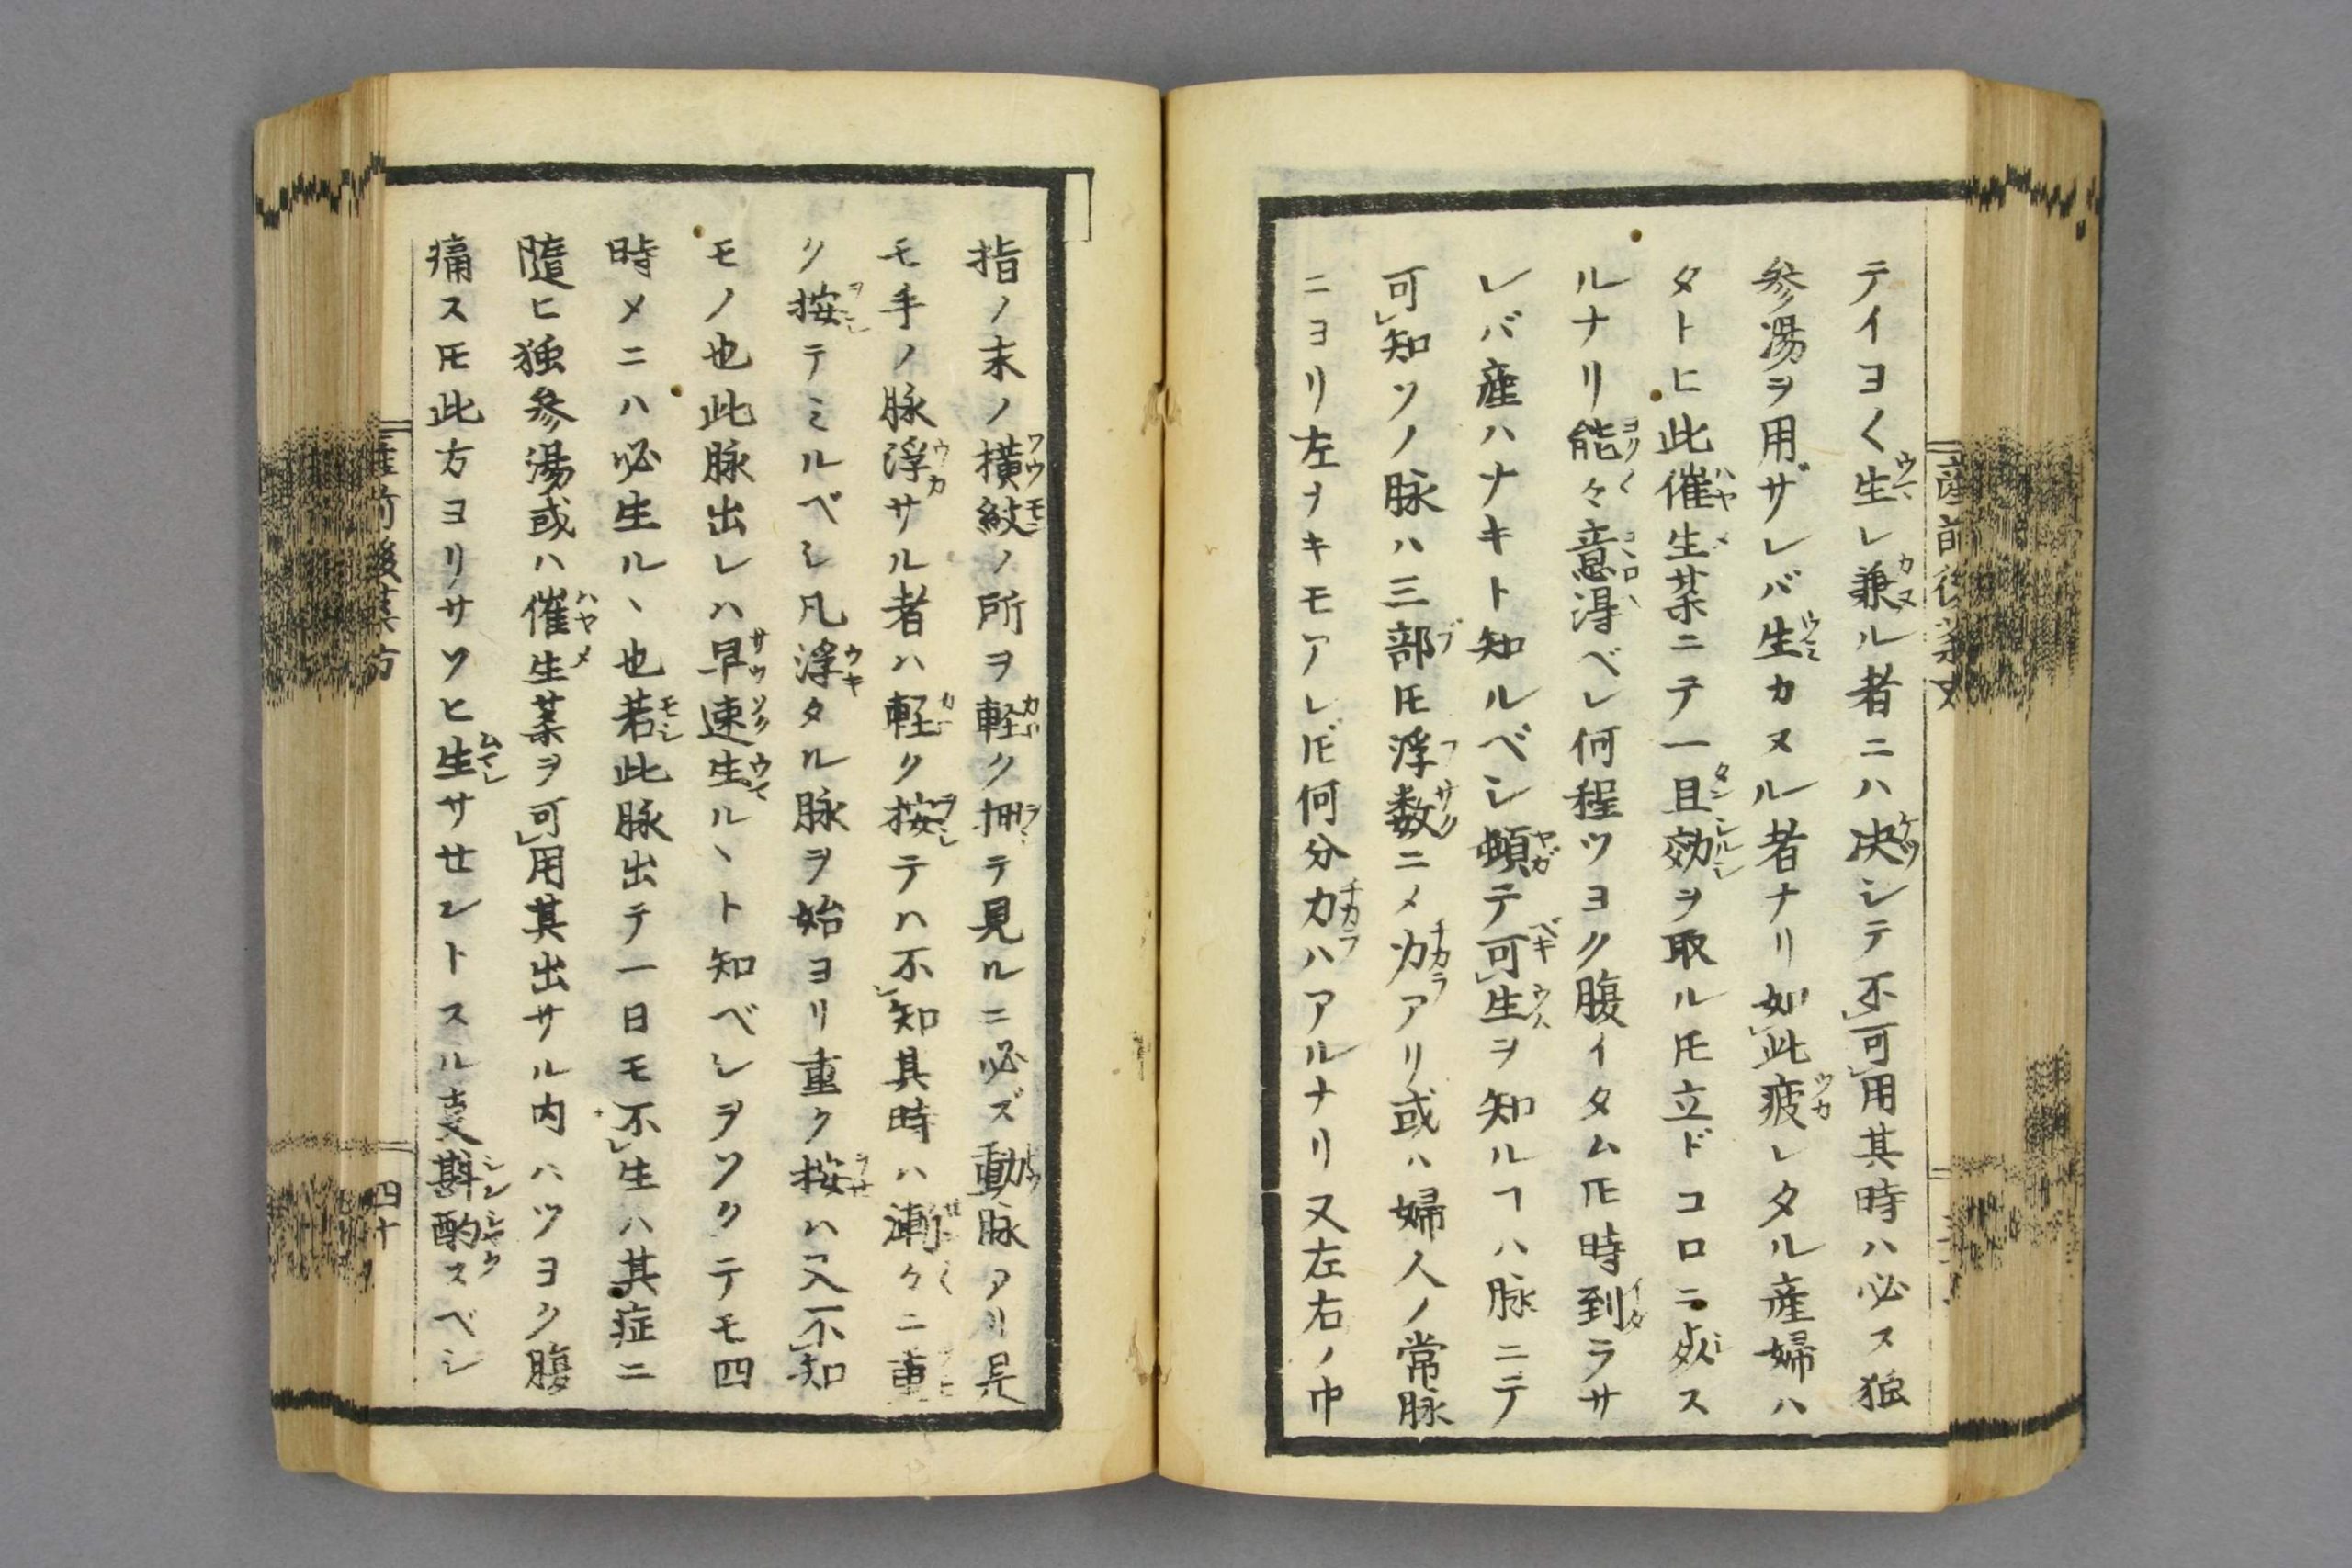 テイヨく生レ兼ル者ニハ决シテ不可用其時ハ必ス独
参湯ヲ用ザレバ生カヌル者ナリ如此疲レタル産婦ハ
タトヒ此催生薬ニテ一旦効ヲ取ル𪜈立ドコロニ死ス
ルナリ能々意得ベレ何程ツヨク腹イタム𪜈時到ラサ
レバ産ハナキト知ルベシ頓テ可生ヲ知ルヿハ脉ニテ
可知ソノ脉ハ三部𪜈浮数ニメ力アリ或ハ婦人ノ常脉
ニヨリ左ナキモアレ𪜈何分力ハアルナリ又左右ノ中
指ノ末ノ横紋ノ所ヲ軽ク押テ見ルニ必ズ動脉アリ是
モ手ノ脉浮サル者ハ軽ク按テハ不知其時ハ漸々ニ重
ク按テミルベシ凡浮タル脉ヲ始ヨリ重ク按ハ又不知
モノ也此脉出レハ早速生ルヽト知ベシヲソクテモ四
時メニハ必生ルヽ也若此脉出テ一日モ不生ハ其症ニ
隨ヒ独参湯或ハ催生薬ヲ可用其出サル内ハツヨク腹
痛ス𪜈此方ヨリサソヒ生サセントスル叓斟酌スベシ
四十